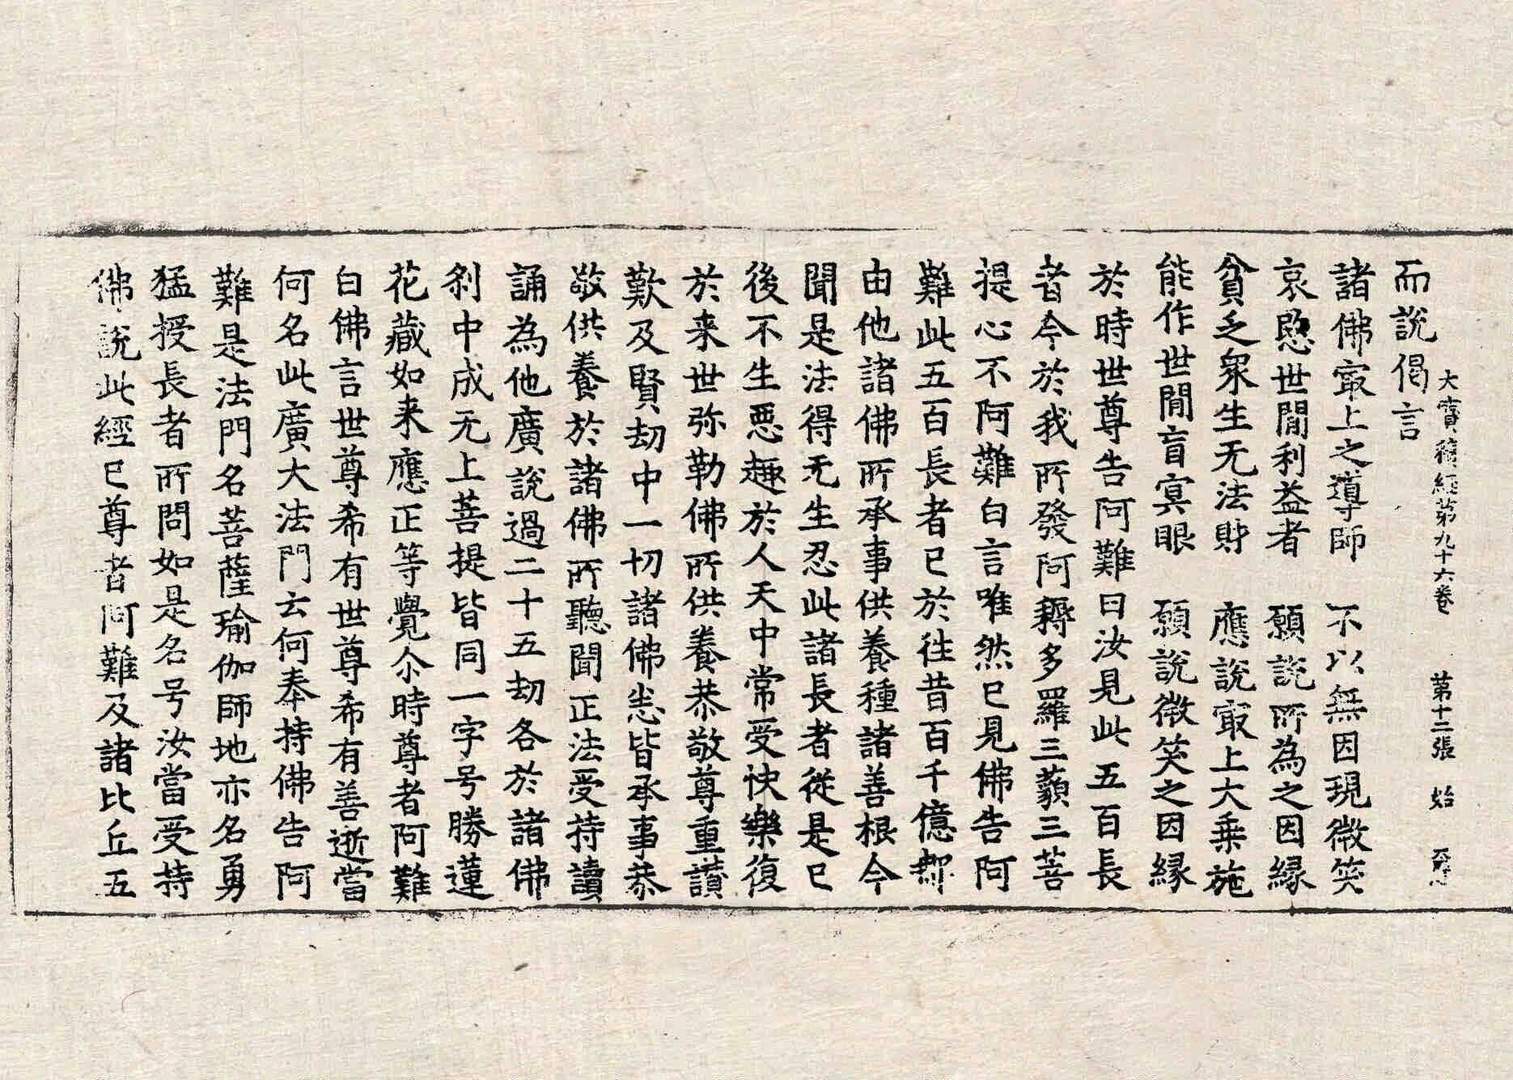 大寶積經第九十六卷 第十二張 始
而說偈言
諸佛㝡上之導師 不以無因現微笑
哀愍世閒利益者 願說所為之因縁
貧乏衆生无法財 應說㝡上大乗施
能作世閒盲冥眼 願說微笑之因縁
於時世尊告阿難曰汝見此五百長
者今於我所發阿耨多羅三藐三菩
提心不阿難白言唯然已見佛告阿
難此五百長者已於往昔百千億那
由他諸佛所承事供養種諸善根今
聞是法得无生忍此諸長者從是已
後不生惡趣於人天中常受快樂復
於来世弥勒佛所供養恭敬尊重讃
歎及賢劫中一切諸佛悉皆承事恭
敬供養於諸佛所聽聞正法受持讀
誦為他廣說過二十五劫各於諸佛
刹中成无上菩提皆同一字号勝蓮
花藏如来應正等覺尒時尊者阿難
白佛言世尊希有世尊希有善逝當
何名此廣大法門云何奉持佛告阿
難是法門名菩薩瑜伽師地亦名勇
猛授長者所問如是名号汝當受持
佛說此經已尊者阿難及諸比丘五